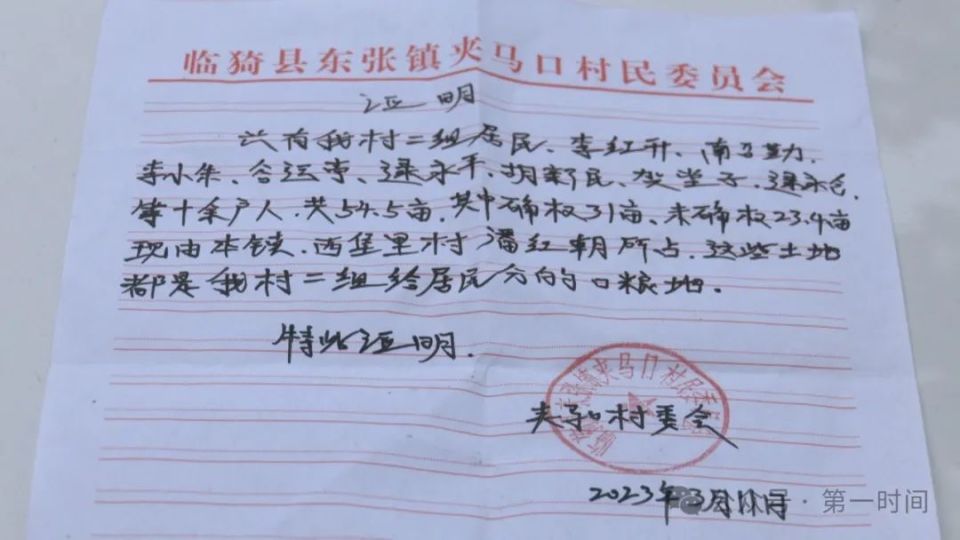 临猗县东张镇夹马口村民委员会
证明
兹有我村二组居民、李红升、南马勤、
李小朱、谷运亭、逯永平、胡新民、贺堂子、逯永仓、
等十余户人.共54.5亩,其中确权31亩、未确权23.4亩
现由本镇、西堡里村潘红朝所占、这些土地
都是我村二组给居民分的口粮地。
特此证明.
夹马口村委会
2023年3月11日
公众号·第一时间